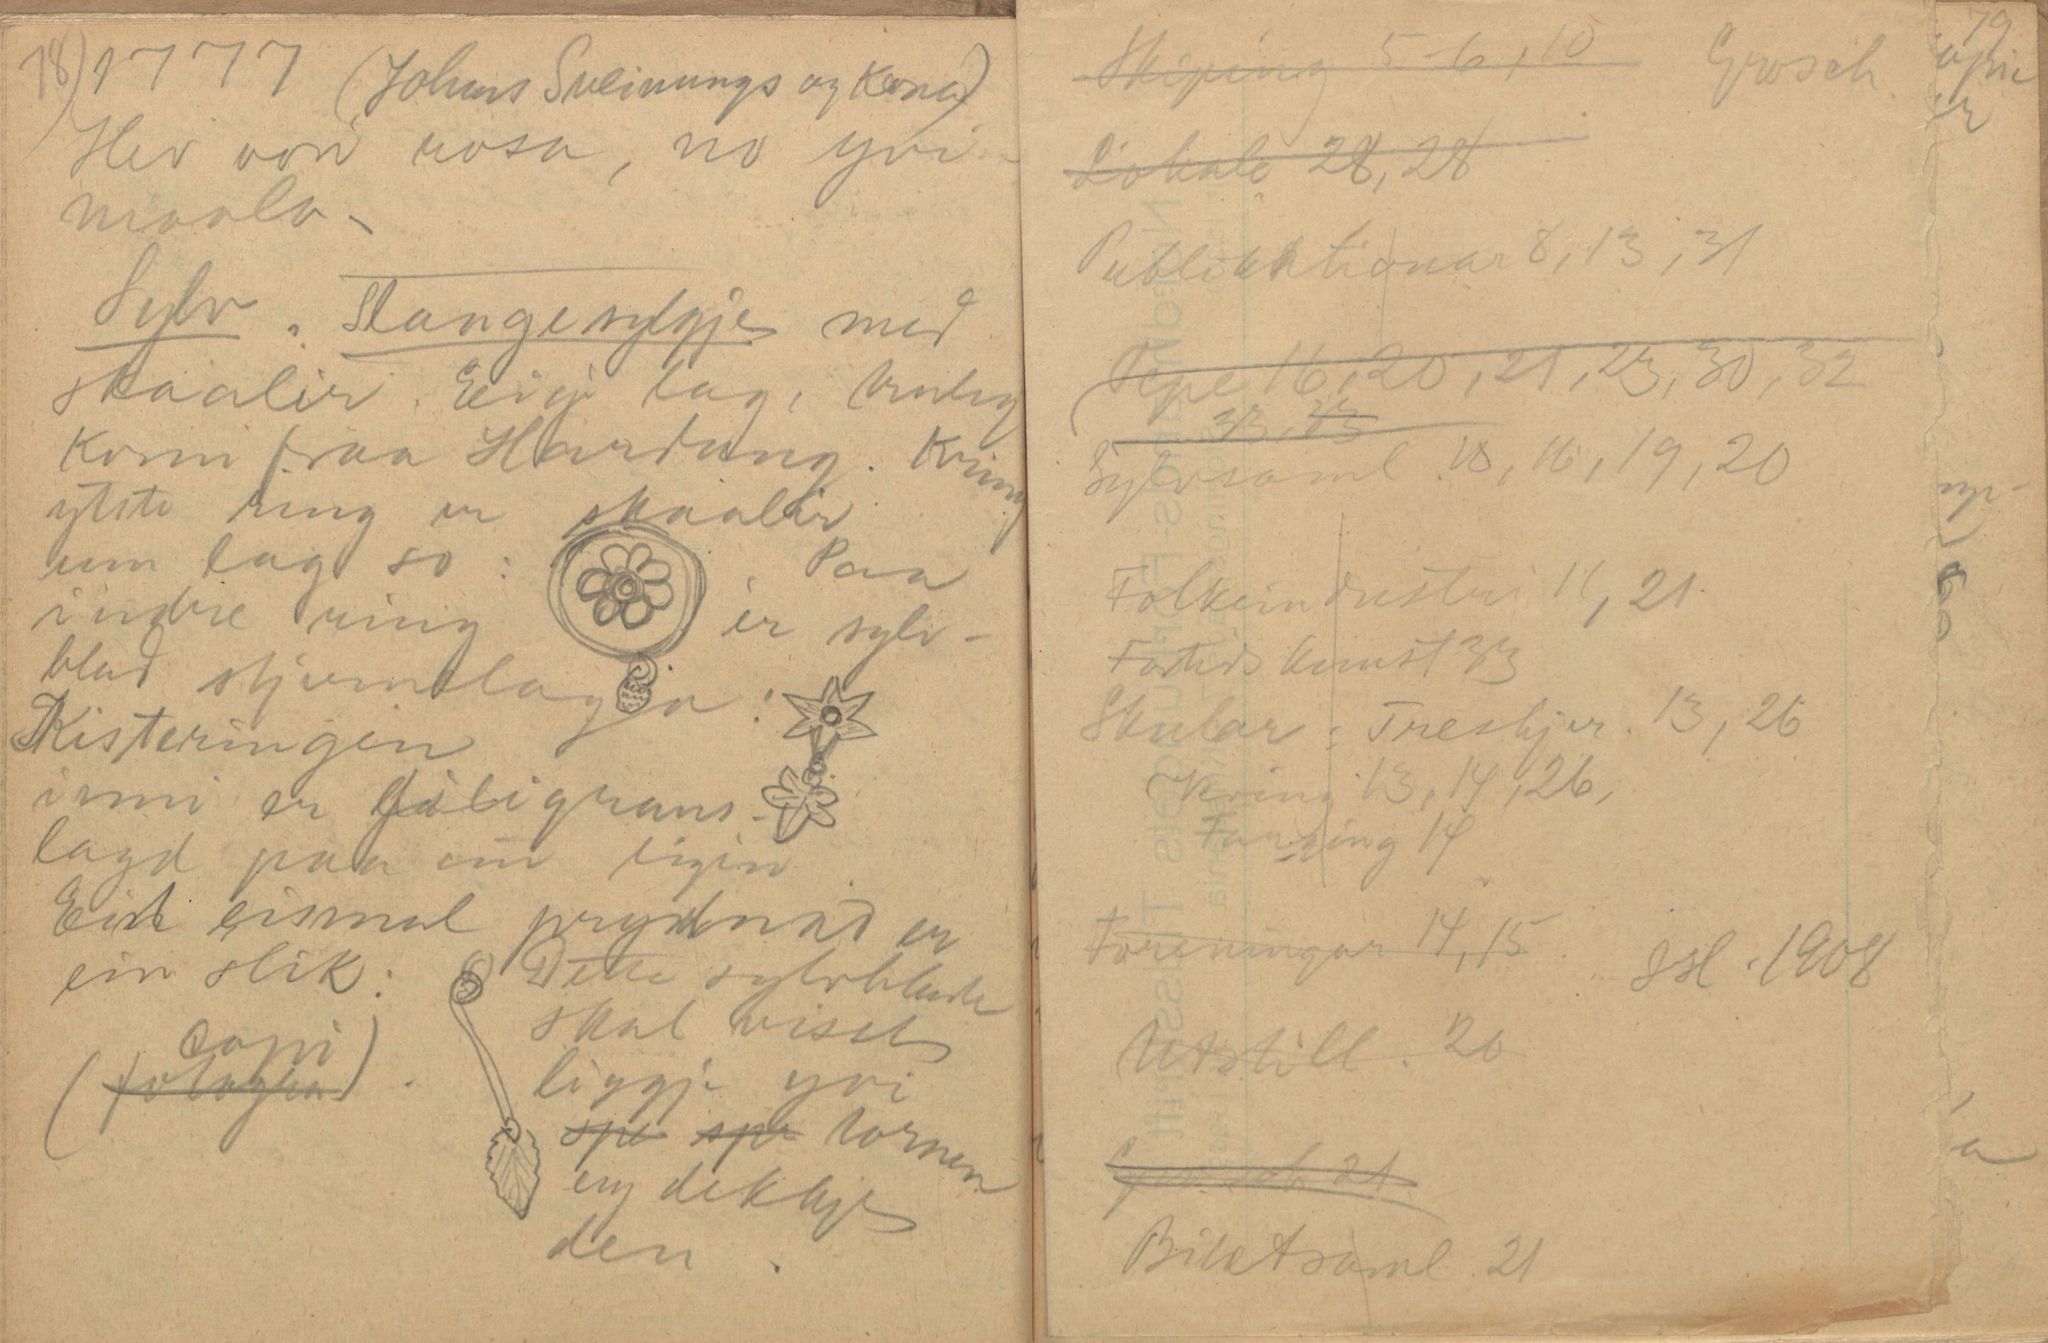 18) 1777 (Johans Sveinungs og Kona)
Hev vori rosa, no yvi-
maala.
Sylv. Slangesylgje med
skaalir. Eige lag, truleg
komi fraa Hardang. Kring
ytste ring er skaalir
um lag so: Paa
indre ring er sylv-
blad stjernelaga:
Kisteringen
inni er filigrans-
lagd paa ein eigin
Eit eismal prydnad er
ein slik:
copi
(fotograf).
Dette sylvblade
skal visst
liggje yvi
spe spe tornen
og dekkje
den.
Skiping 5-6, 10 Grosch
Lokale 28, 28
Publikationar 8, 13, 31
Type 16, 20, 21, 23, 30, 32
33, 23
Sylvsaml. 18, 16, 19, 20
Folkeindustri 11, 21
Fortids kunst 33
Skular: Treskjer. 13, 26
Vering 13, 14, 26,
Farging 14
Foreningar 14, 15
Jsl. 1908
Utstill. 20
Grosch 21
Biletsaml. 21
79
er
a